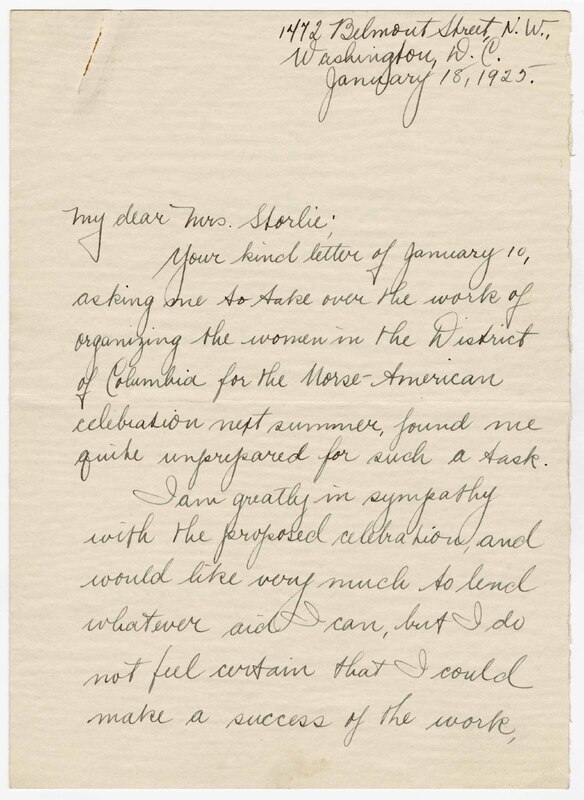 1472 Belmont Street, N.W.,
Washington, D.C.
January 18, 1925.
My dear Mrs. Storlie;
Your kind letter of January 10,
asking me to take over the work of
organizing the women in the District
of Columbia for the Norse-American
celebration next summer, found me
quite unprepared for such a task.
I am greatly in sympathy
with the proposed celebration, and
would like very much to lend
whatever aid I can, but I do
not feel certain that I could
make a success of the work,